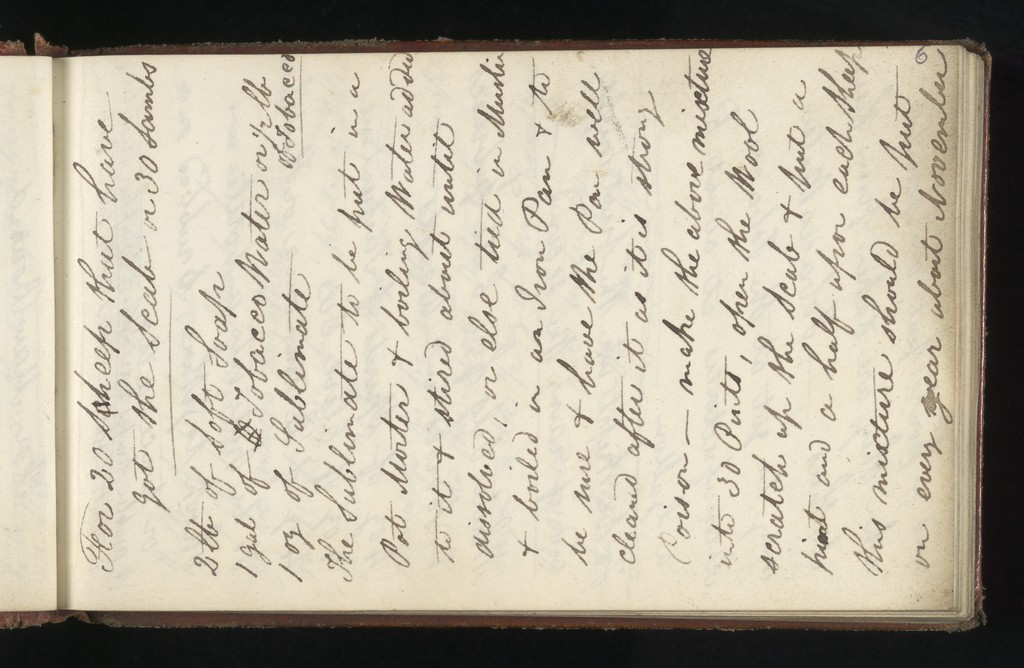 For 20 Sheep that have
got the Scab or 30 Lambs
2 lb of Soft Soap
1 gal of Tobacco Water or ½ lb
of Tobacco
1 oz of Sublimate
The Sublimate to be put in a
Pot Morter & boiling Water added
to it & stired about until
dissolved, or else tied in Muslin
& boiled in an Iron Pan & to
be sure & have the Pan well
cleand after it as it is strong
Poison — make the above mixture
into 30 Pints, open the Wool
scratch up the Scab & put a
pint and a half upon each sheep
this mixture should be put
on every year about November